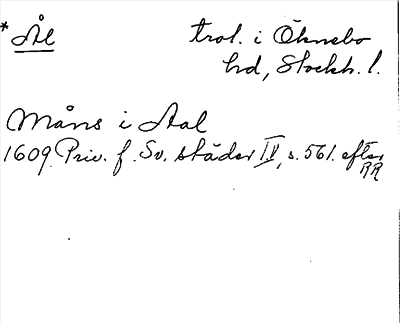 * Ål trol. i Öknebo
hd, Stockh. l.
Måns i Aal
1609. Priv. f. Sv. städer IV, s. 561. efter
RR